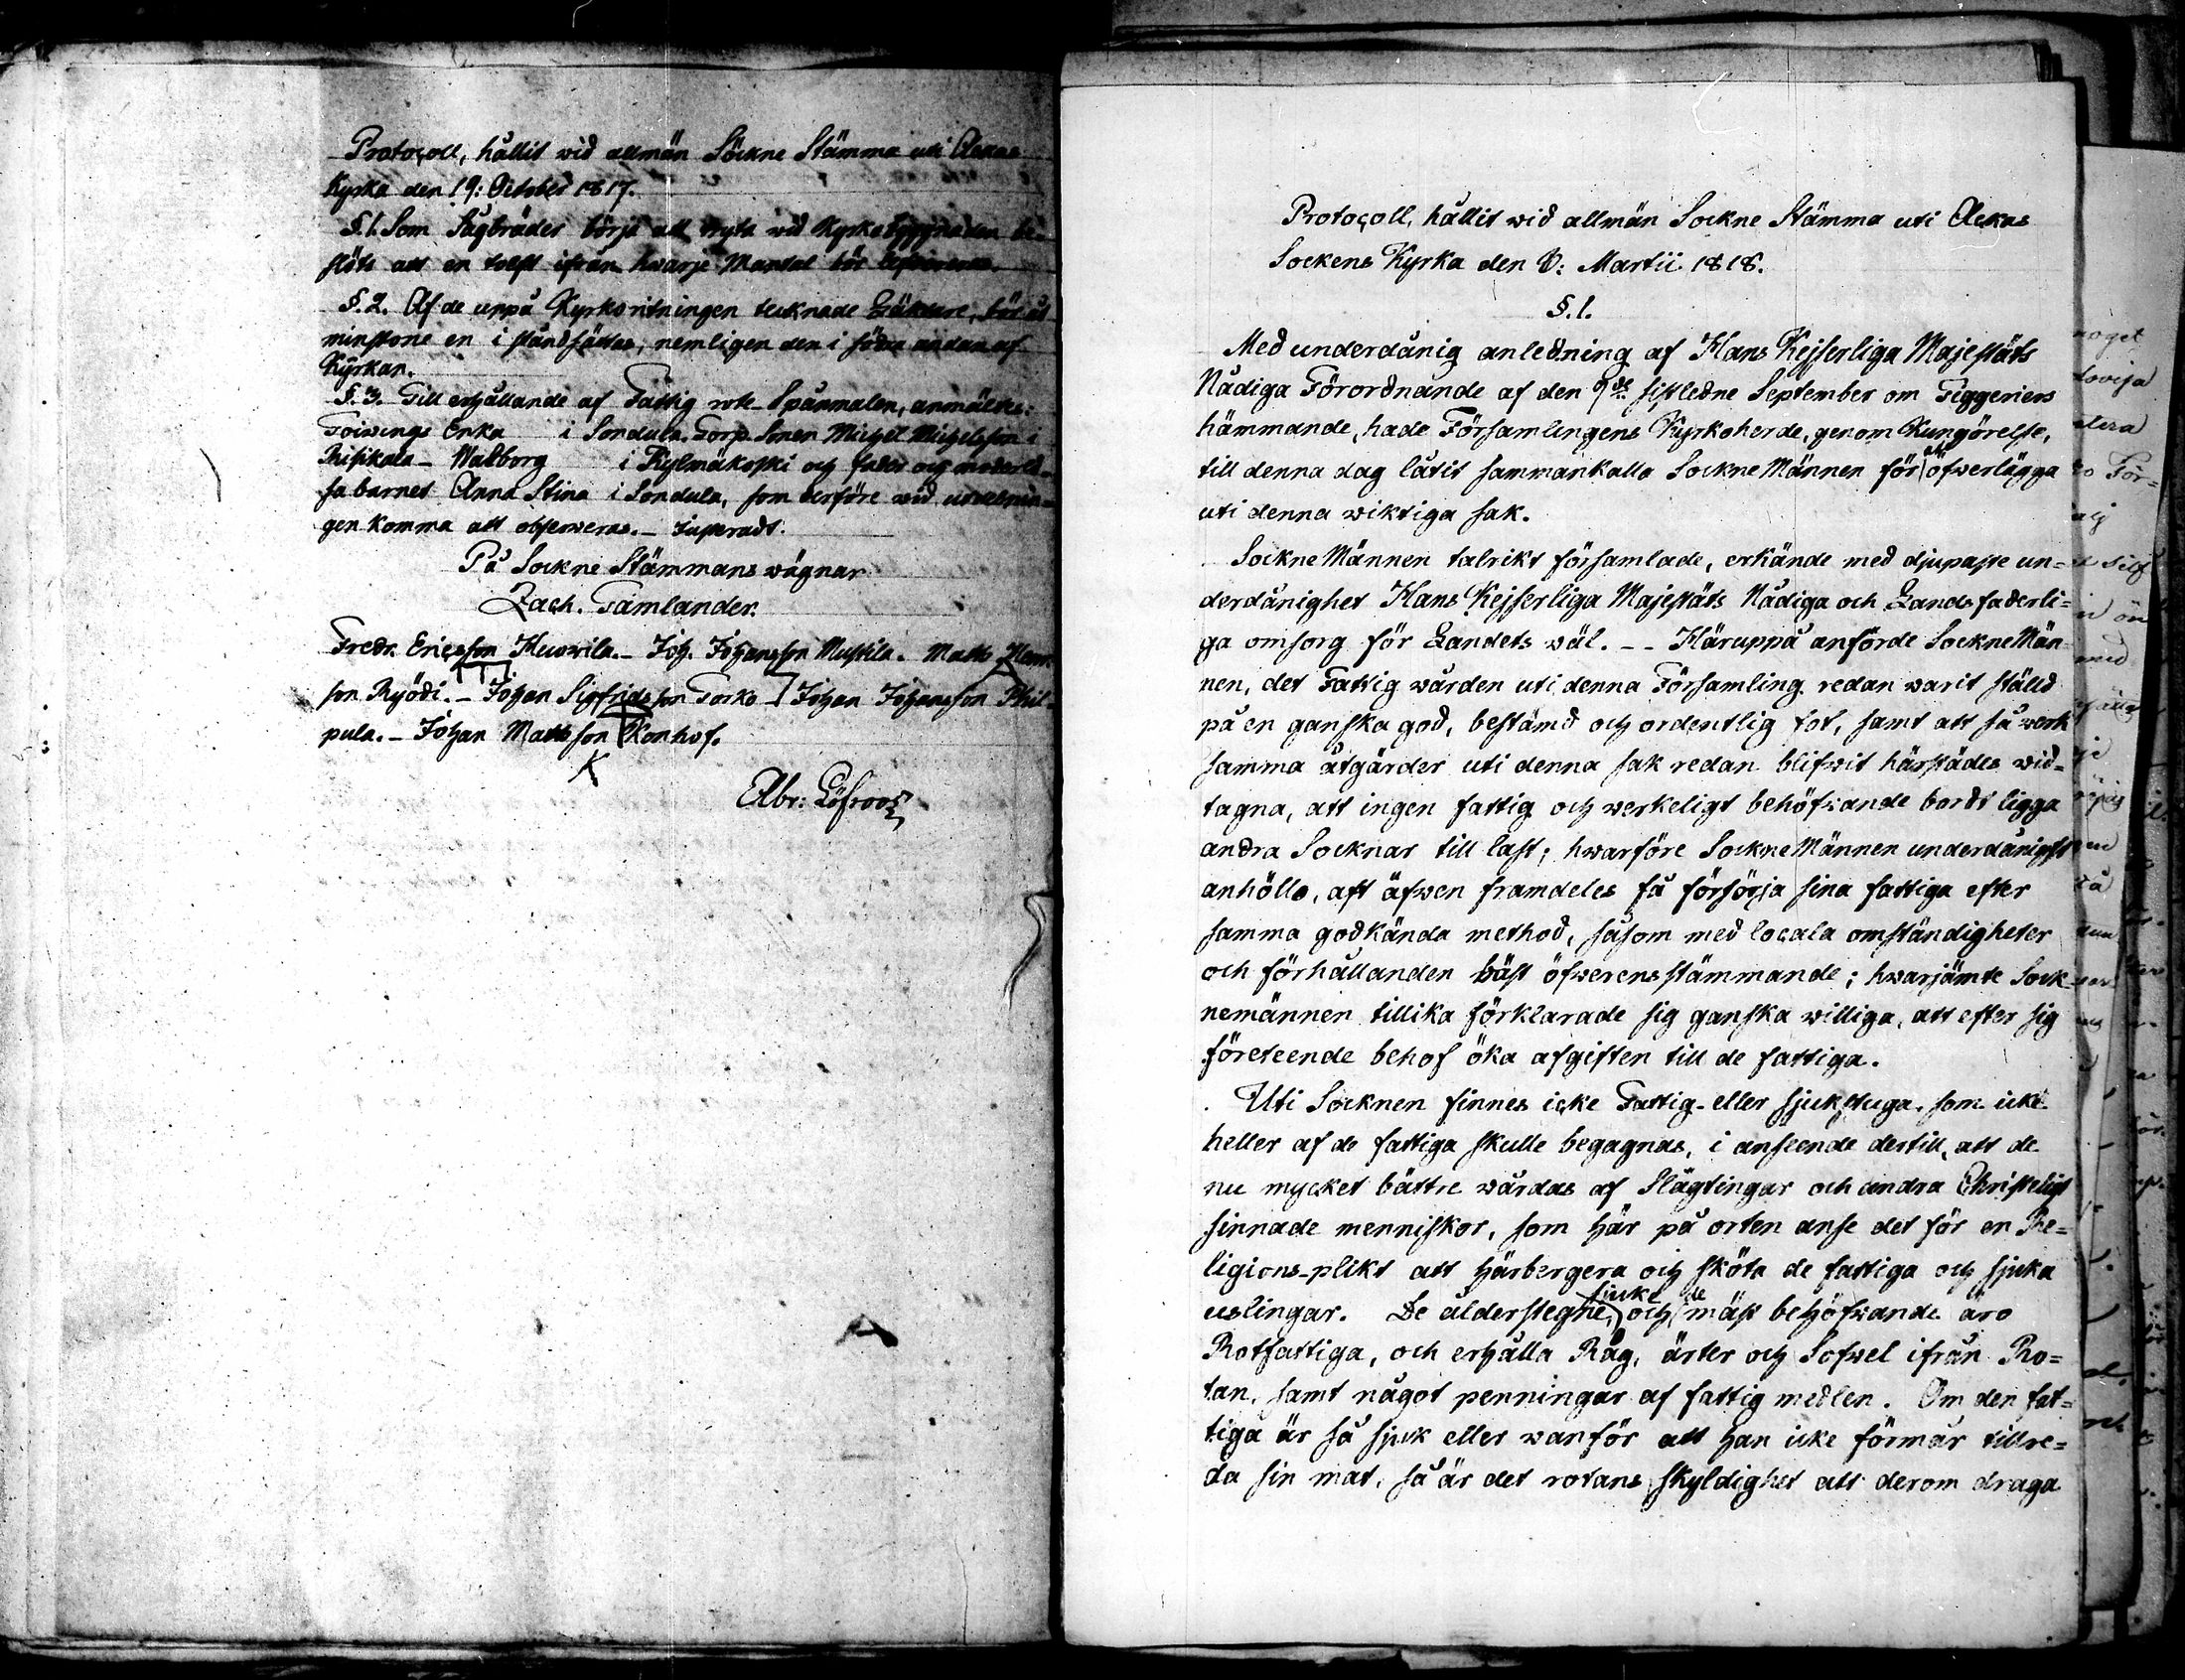 Protocoll, hållit wid allmän Sockne Stämma uti Ackas
Kyrka den 19: October 1817.
§.1. Som Sågbräder börja att tryta wid Kyrkobyggnaden be-
slöts att en tolft ifrån hwarje Mantal bör
§.2. Af de uppå Kyrkoritningen tecknade Läktare, bör åt
minstone en i ståndsättas, nemligen den i södra ändan af
Kyrkan.
§.3. Till erhållande af Fattig rote Spanmålen, anmältes:
Toiwings Enka i Sondula. Torp. Sonen Michel Michelsson i
Riisikala - Walborg i Kylmäkoski och fader och moderlö-
sa barnet Anna Stina i Sondula, som derföre wid utdelnin-
gen komma att observeras. - Justeradt.
På Sockne Stämmans wägnar
Zach. Tamlander.
Fredr. Ericsson Heuwila. - Joh. Johansson Mustila. Matts Henr.
son Ryödi. - Johan Sigfridsson Torko - Johan Johansson Phil-
pula. - Johan Mattsson Konhof.
Abr: Löfroos
Protocoll, hållit wid allmän Sockne Stämma uti Ackas
Sockens Kyrka den 8: Martii 1818.
§.1.
Med underdånig anledning af Hans Kejserliga Majestäts
Nådiga Förordnande af den 9de sistledne September om Tiggeriers
hämmande, hade Församlingens Kyrkoherde, genom Kungörelse,
till denna dag låtit sammankalla Sockne Männen för att öfwerlägga
uti denna wiktiga sak.
Sockne Männen talrikt församlade, erkände med djupaste un-
derdånighet Hans Kejserliga Majestäts Nådiga och Landsfaderli-
ga omsorg för Landets wäl. - - Häruppå anförde Sockne Män-
nen, det Fattig wården uti denna Församling redan warit ställd
på en ganska god, bestämd och ordentlig fot, samt att så werk
samma åtgärder uti denna sak redan blifwit härstädes wid-
tagna, att ingen fattig och werkeligt behöfwande bordt ligga
andra Socknar till last; hwarföre Sockne Männen underdånigst
anhölle, att äfwen framdeles få försörja sina fattiga efter
samma godkända method, såsom med locala omständigheter
och förhållanden bäst öfwerensstämmande; hwarjämte Sock-
nemännen tillika förklarade sig ganska williga, att efter sig
företeende behof öka afgiften till de fattiga.
Uti Socknen finnes icke Fattig- eller sjukstuga, som icke
heller af de fattiga skulle begagnas, i anseende dertill, att de
nu mycket bättre wårdas af Slägtingar och andra Christeligt
sinnade menniskor, som här på orten anse det för en Re-
ligions-plikt att härbergera och sköta de fattiga och sjuka
uslingar. De ålderstegne, sjuke och de mäst behöfwande äro
Rotfattiga, och erhålla Råg, ärter och Sofwel ifrån Ro-
tan, samt något penningar af fattig medlen. Om den fat-
tiga är så sjuk eller wanför att han icke förmår tillre-
da sin mat, så är det rotans skyldighet att derom draga